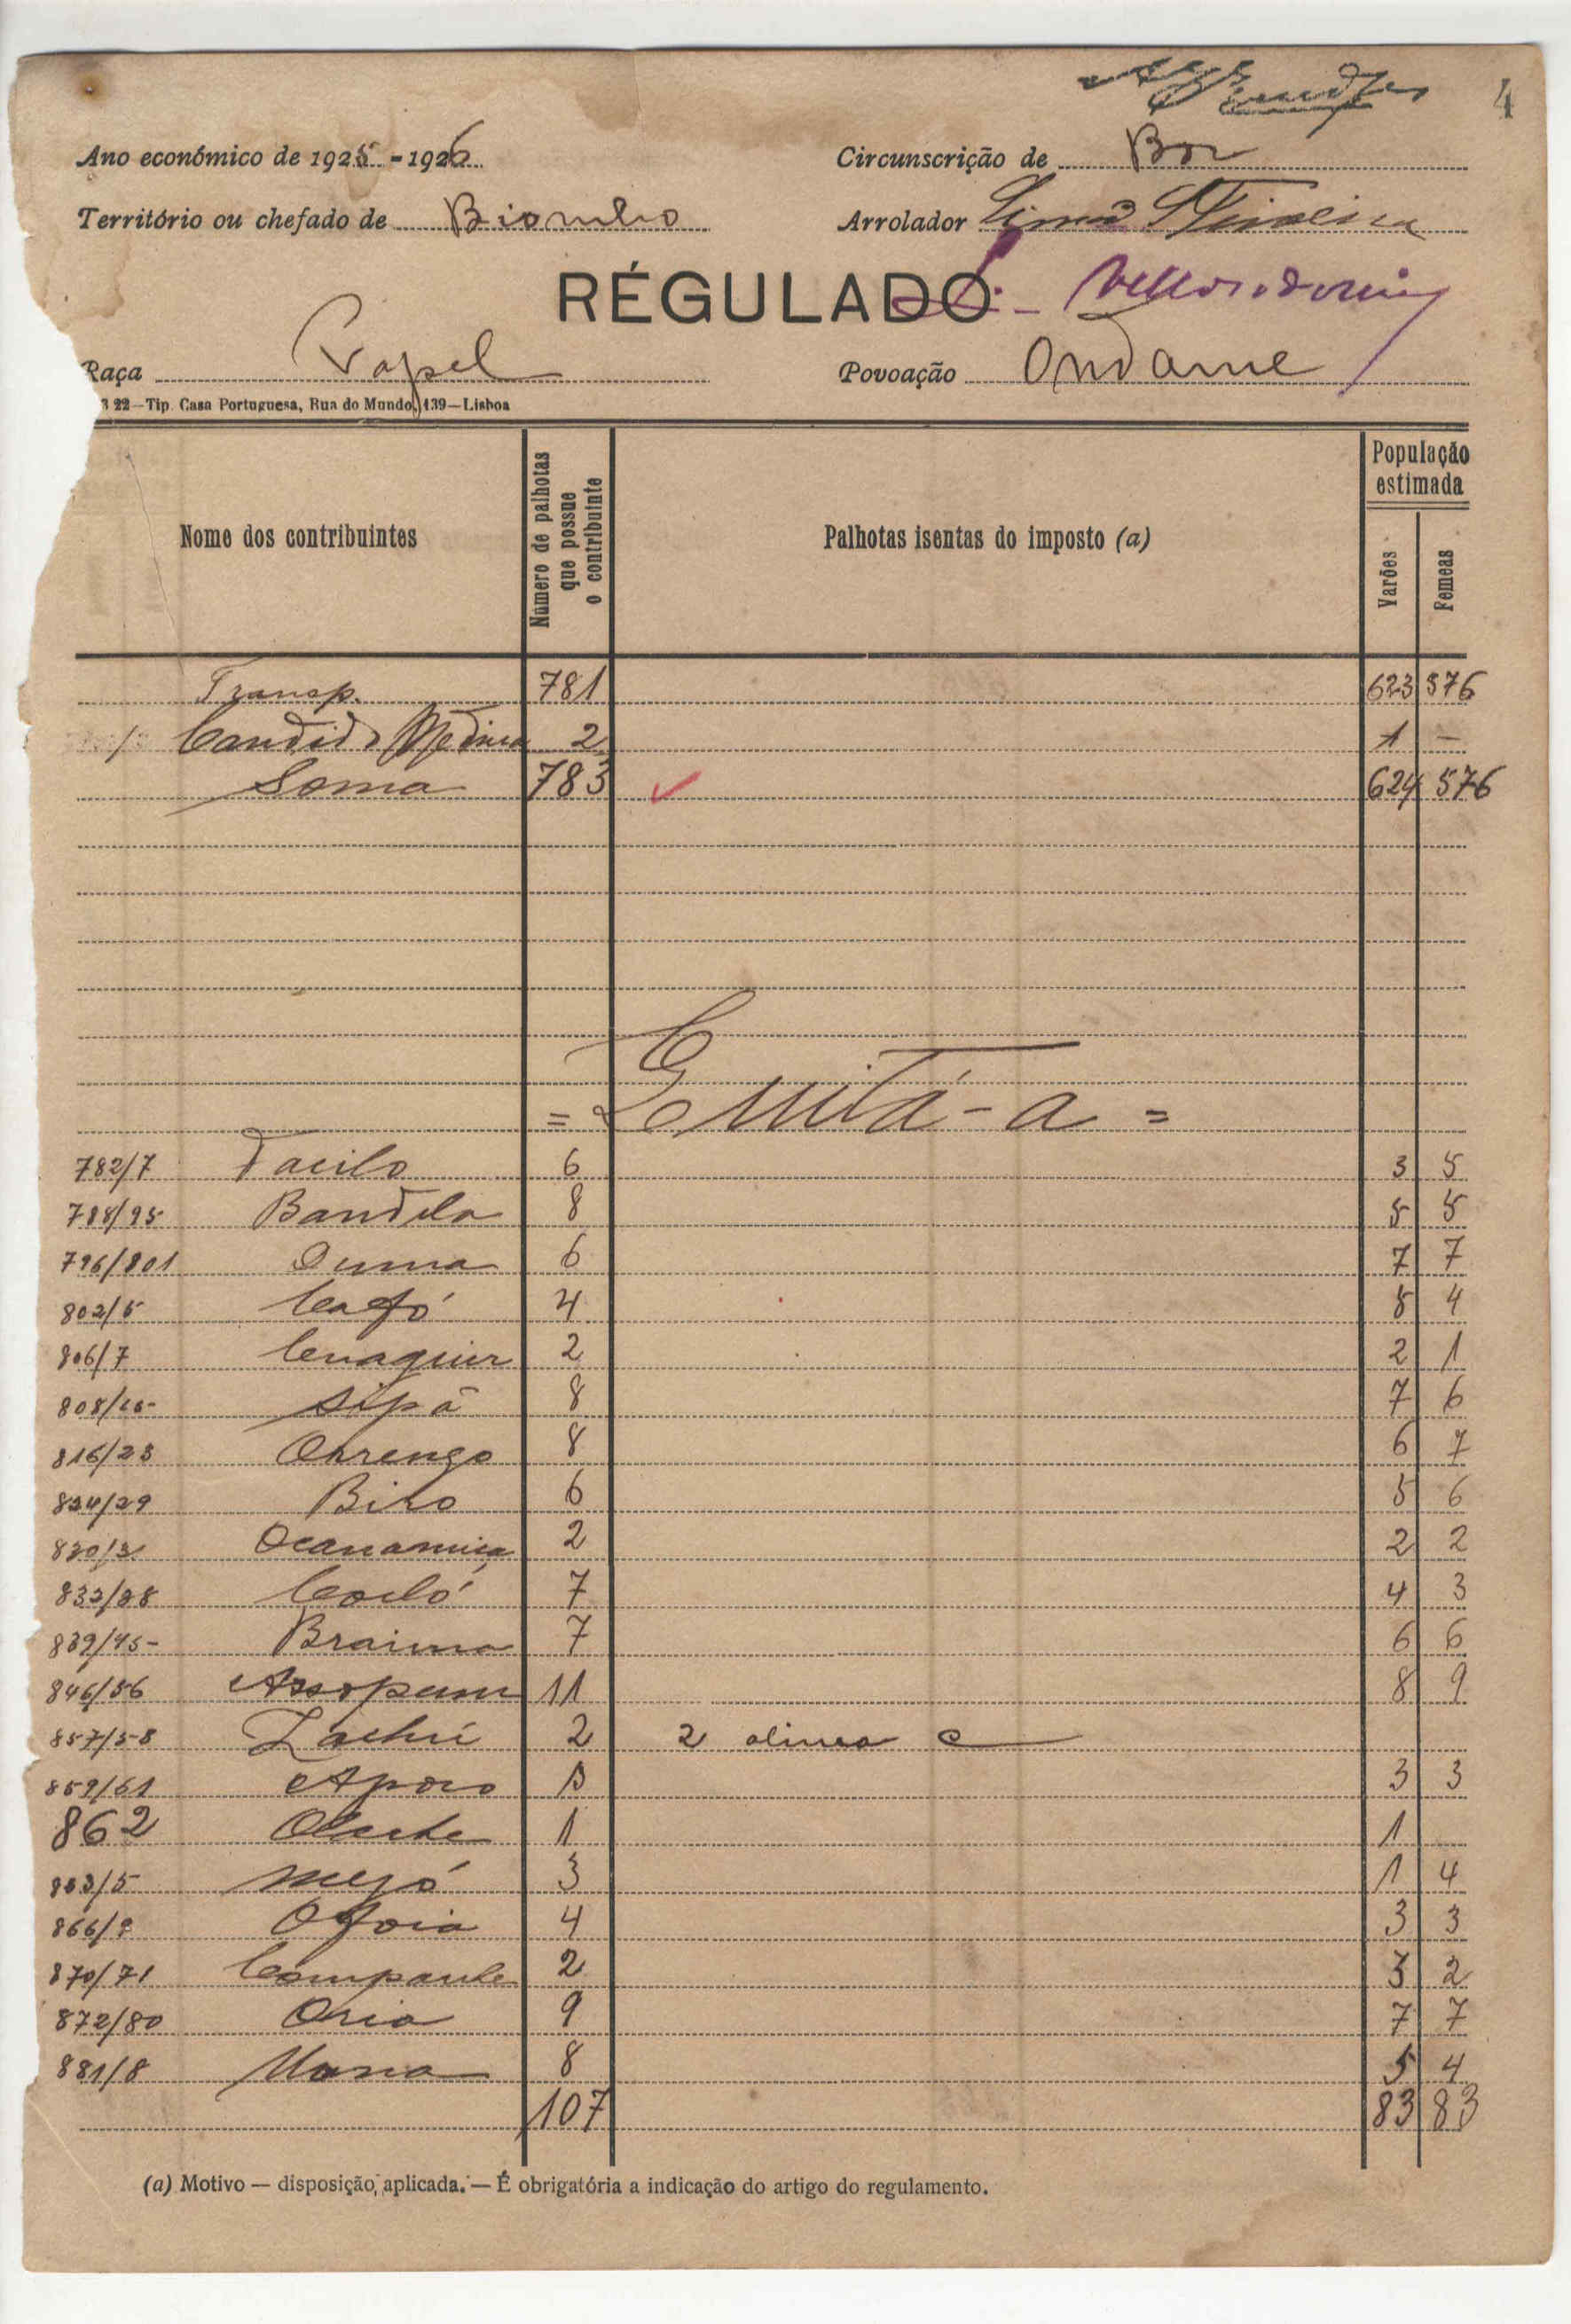 4
Ano económico de 1925 - 1926 Circunscrição de Bor
Território ou chefado de Biombo Arrolador Lima Teixeira
RÉGULADO
Raça Papel Povoação Ondame
22—Tip. Casa Portuguesa, Rua do Mundo, 139—Lisboa
Nome dos contribuintes Número de palhotas que possue o contribuinte Palhotas isentas do imposto (a) População estimada
Varões Femeas
Transp. 781 623 576
Candido Medina 2 1 —
Soma 783 624 576
782/7 Tacilo 6 3 5
788/95 Bandela 8 5 5
796/801 Duma 6 7 7
802/5 Cafó 4 5 4
806/7 2 2 1
808/15 Sipá 8 7 6
816/23 8 6 7
824/29 Biro 6 5 6
830/31 2 2 2
832/38 Coiló 7 4 3
839/45 Braima 7 6 6
846/56 11 8 9
857/58 2 2 alinea c
859/61 3 3 3
862 1 1
863/5 3 1 4
866/9 Ofoia 4 3 3
870/71 2 3 2
872/80 Oria 9 7 7
881/8 8 5 4
107 83 83
(a) Motivo — disposição aplicada. — É obrigatória a indicação do artigo do regulamento.